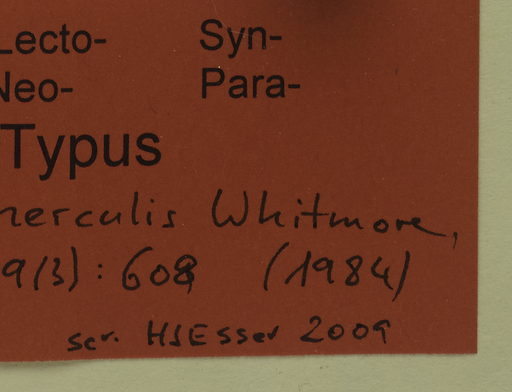 Lecto- Syn-
Neo- Para-
Typus
herculis Whitmore,
9(3): 608 (1984)
scr. HJEsser 2009